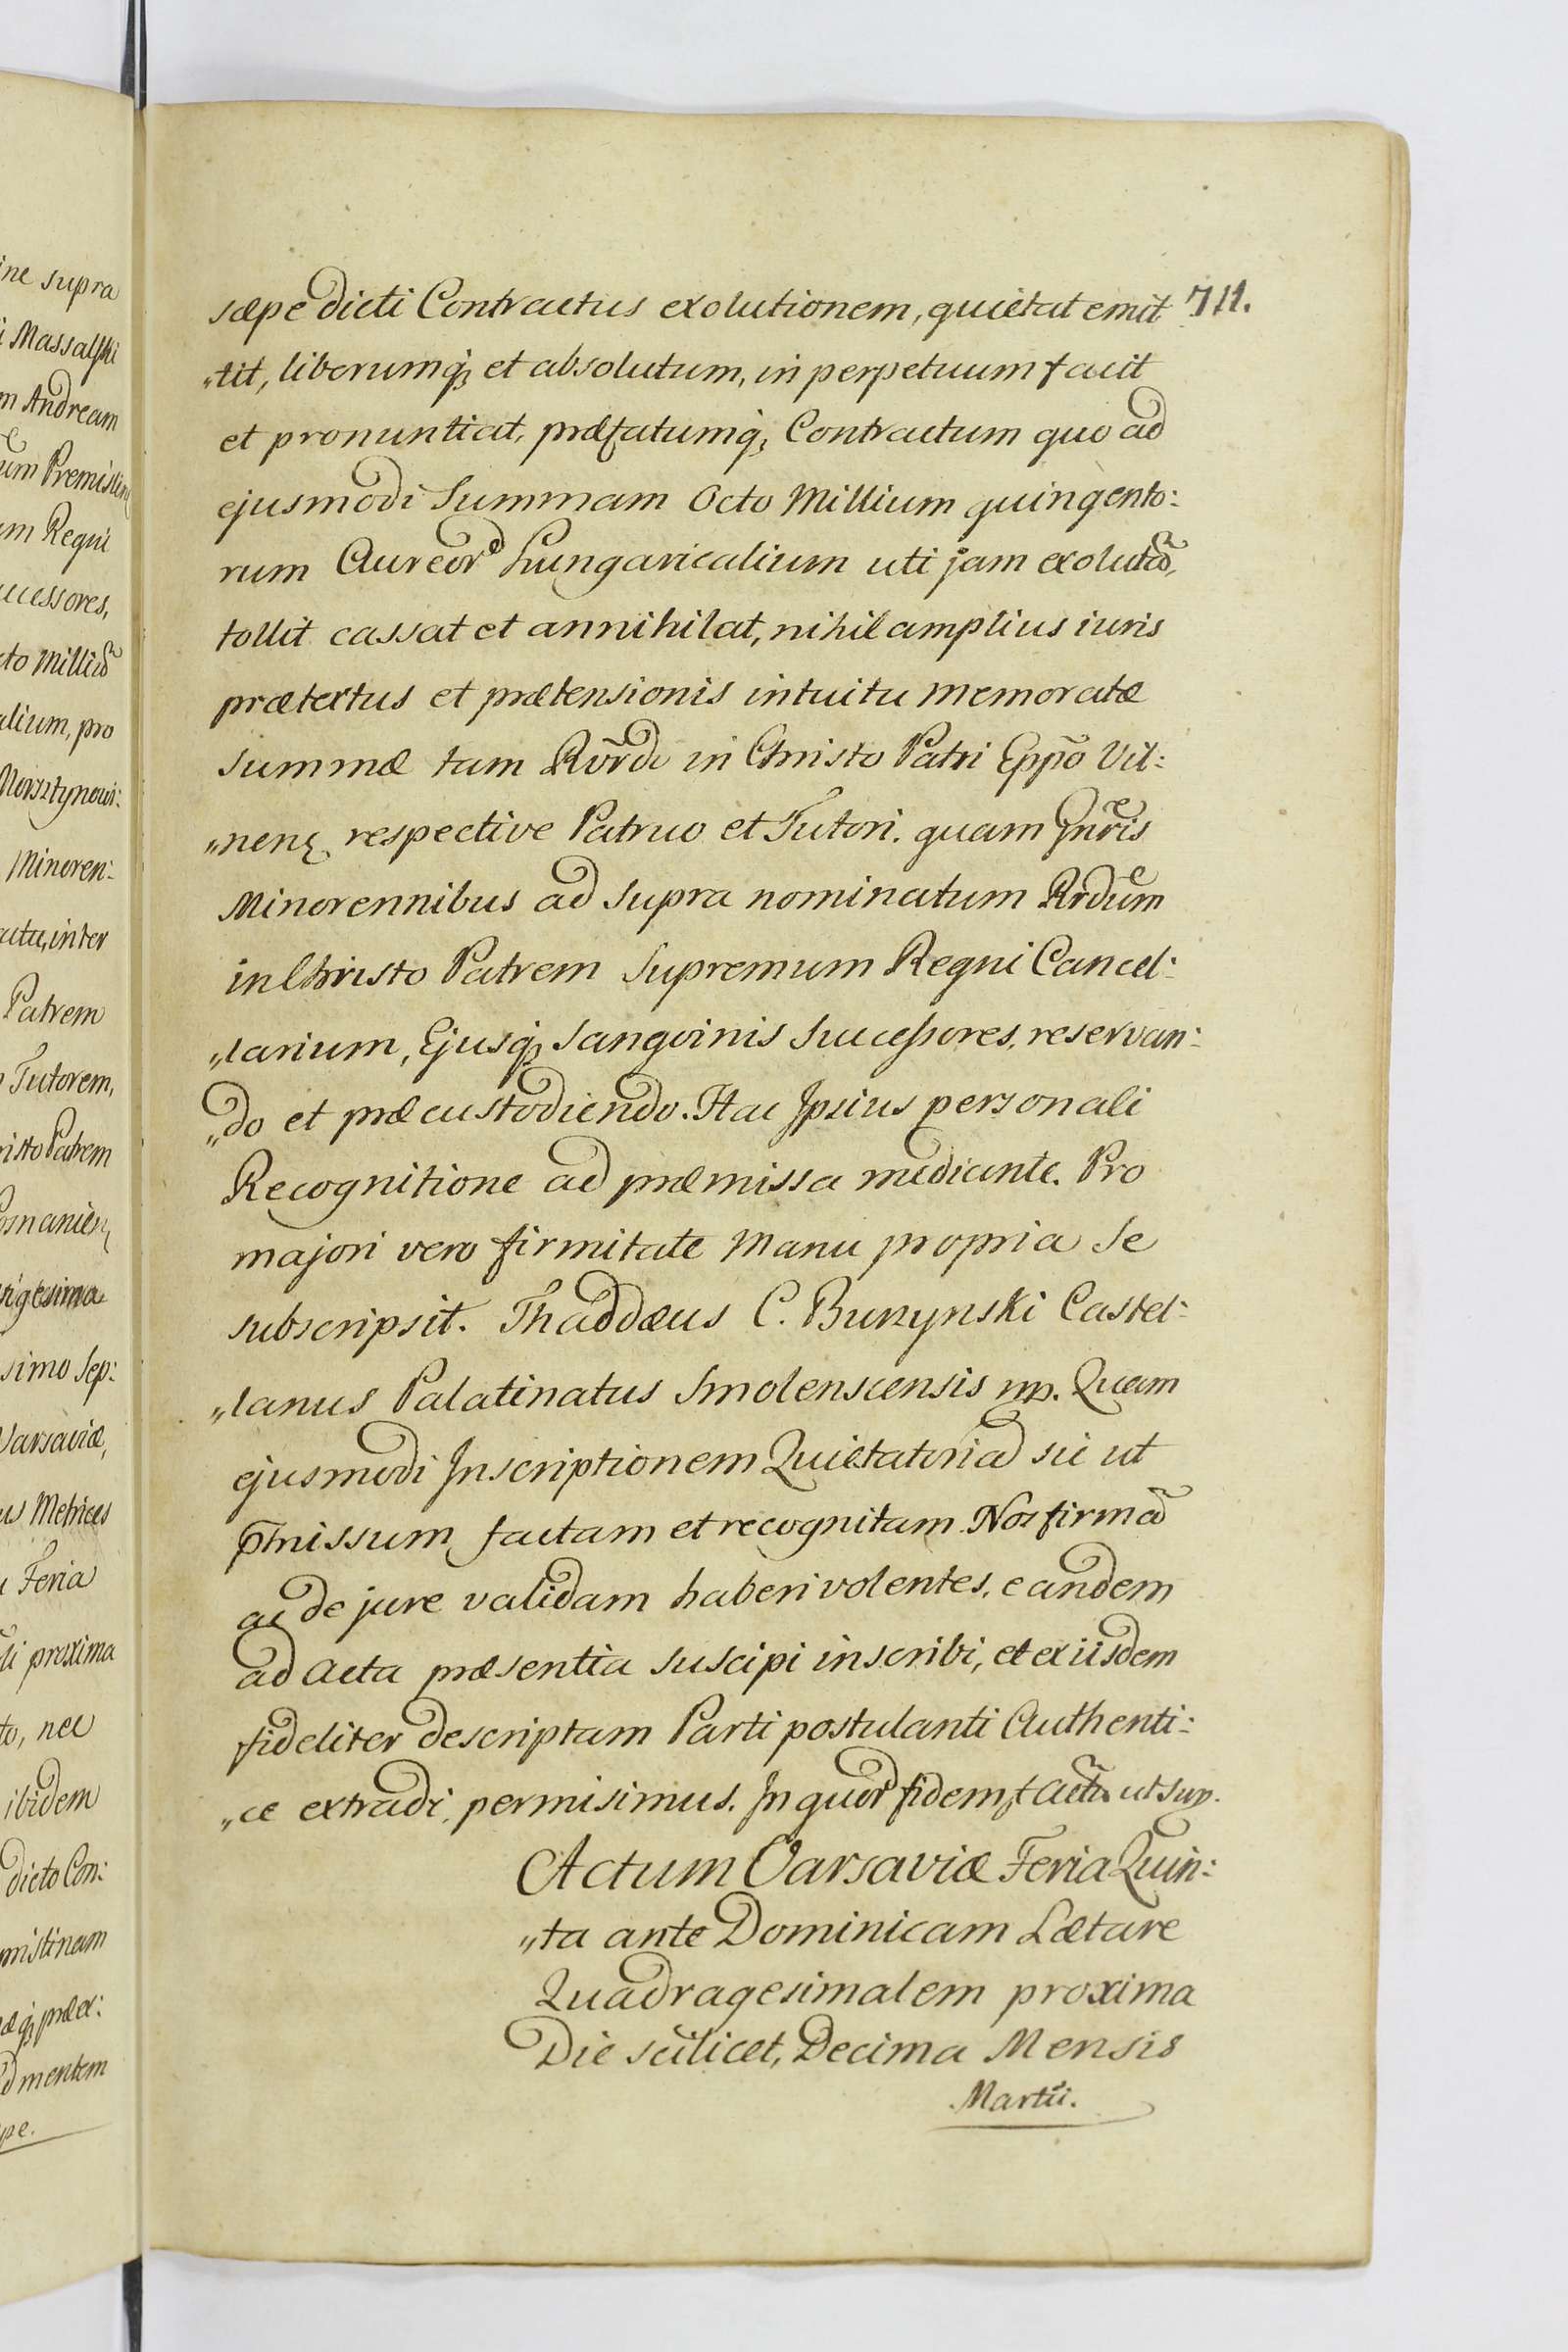 sæpe dicti Contractus exolutionem, quietat emit 711.
„tit, liberumq́; et absolutum, in perpetuum facit
et pronuntiat, præfatumq́; Contractum quo ad
ejusmodi Summam Octo Millium quingento:
rum Aureor̃ hungaricalium uti jam exolutã,
tollit cassat et annihilat, nihil amplius iuris
prætextus et prætensionis intuitu memoratæ
summæ tam Rṽrdo in Christo Patri Eppõ Vil:
„nenę respective Patruo et Tutori, quam Gnr̃is
Minorennibus ad supra nominatum Rrdũm
in Christo Patrem Supremum Regni Cancel:
„larium, Ejusq́; Sangvinis Successores, reservan:
„do et præcustodiendo. Hac Ipsius personali
Recognitione ad præmissa mediante. Pro
majori vero firmitate manu propria se
subscripsit. Thaddæus C. Burzynski Castel:
„lanus Palatinatus Smolenscensis mp. Quam
ejusmodi Inscriptionem Quietatoriã sic ut
p̃missum factam et recognitam Nos firmã
ac de jure validam haberi volentes, eandem
ad Acta præsentia suscipi inscribi, et ex iisdem
fideliter descriptam Parti postulanti Authenti:
„ce extradi permisimus. In quor̃ fidem, ut sup.
Actum Varsaviæ Feria Quin:
„ta ante Dominicam Lætare
Quadragesimalem proxima
Die scilicet, Decima Mensis
Martii.
ine supra
Massalski
m Andream
um
m Regni
uccessores,
cto Milliũ
alium, pro
Minoren:
inter
Patrem
Tutorem,
risto Patrem
simo Sep:
Varsaviæ,
us Metrices
Feria
li proxima
to, nec
ibidem
dicto Con:
mistinam
æq́; præex:
d mentem
pe.